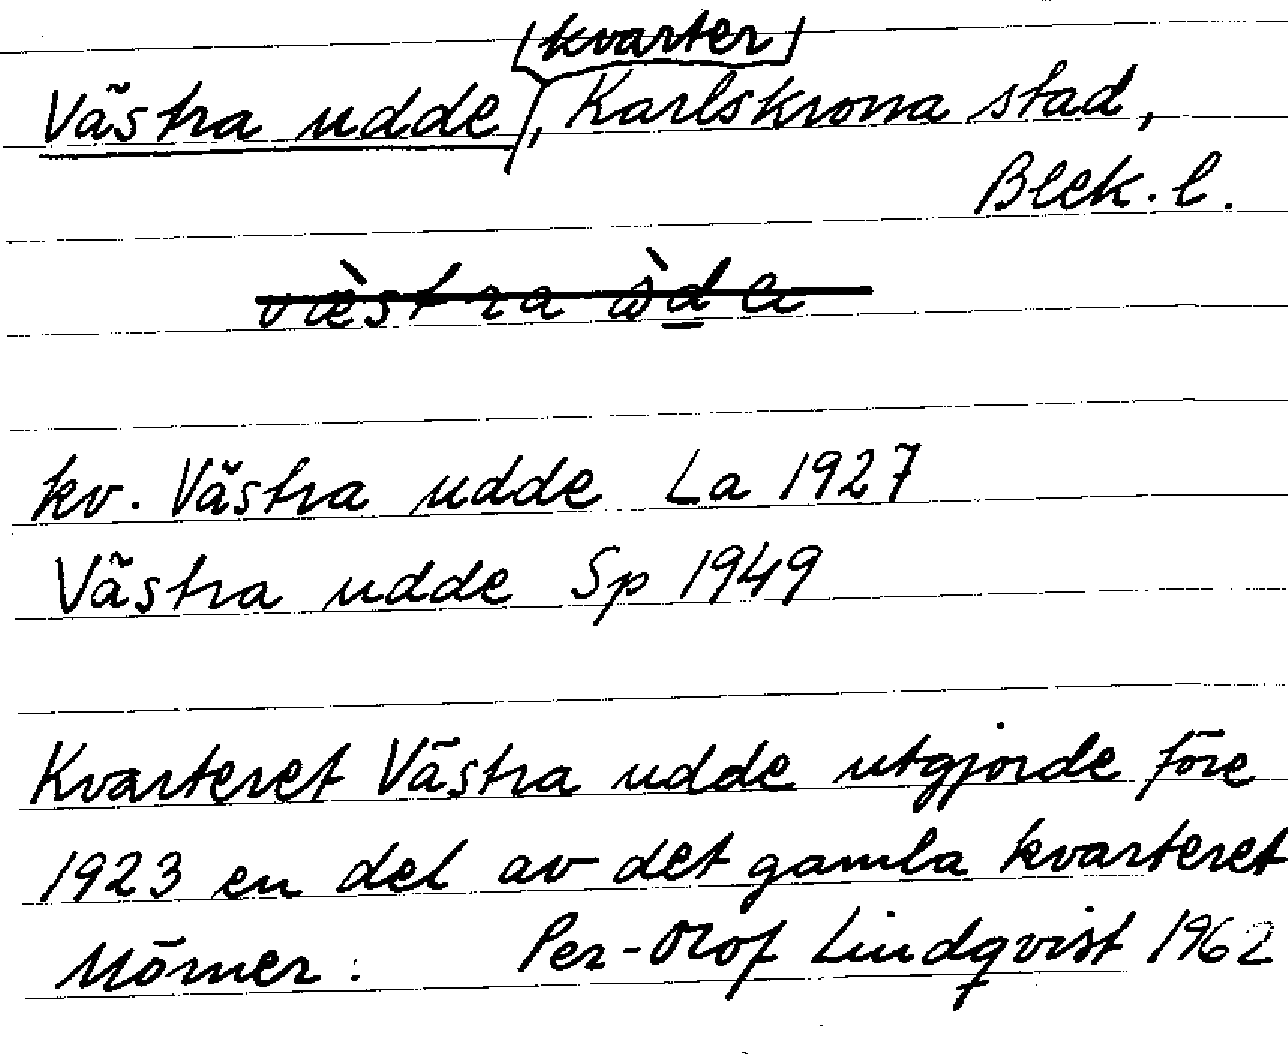 (kvarter)
Västra udde, Karlskrona stad,
Blek. l.
kv. Västra udde La 1927
Västra udde Sp 1949
Kvarteret Västra udde utgjorde före
1923 en del av det gamla kvarteret
Mörner. Per-Olof Lindqvist 1962